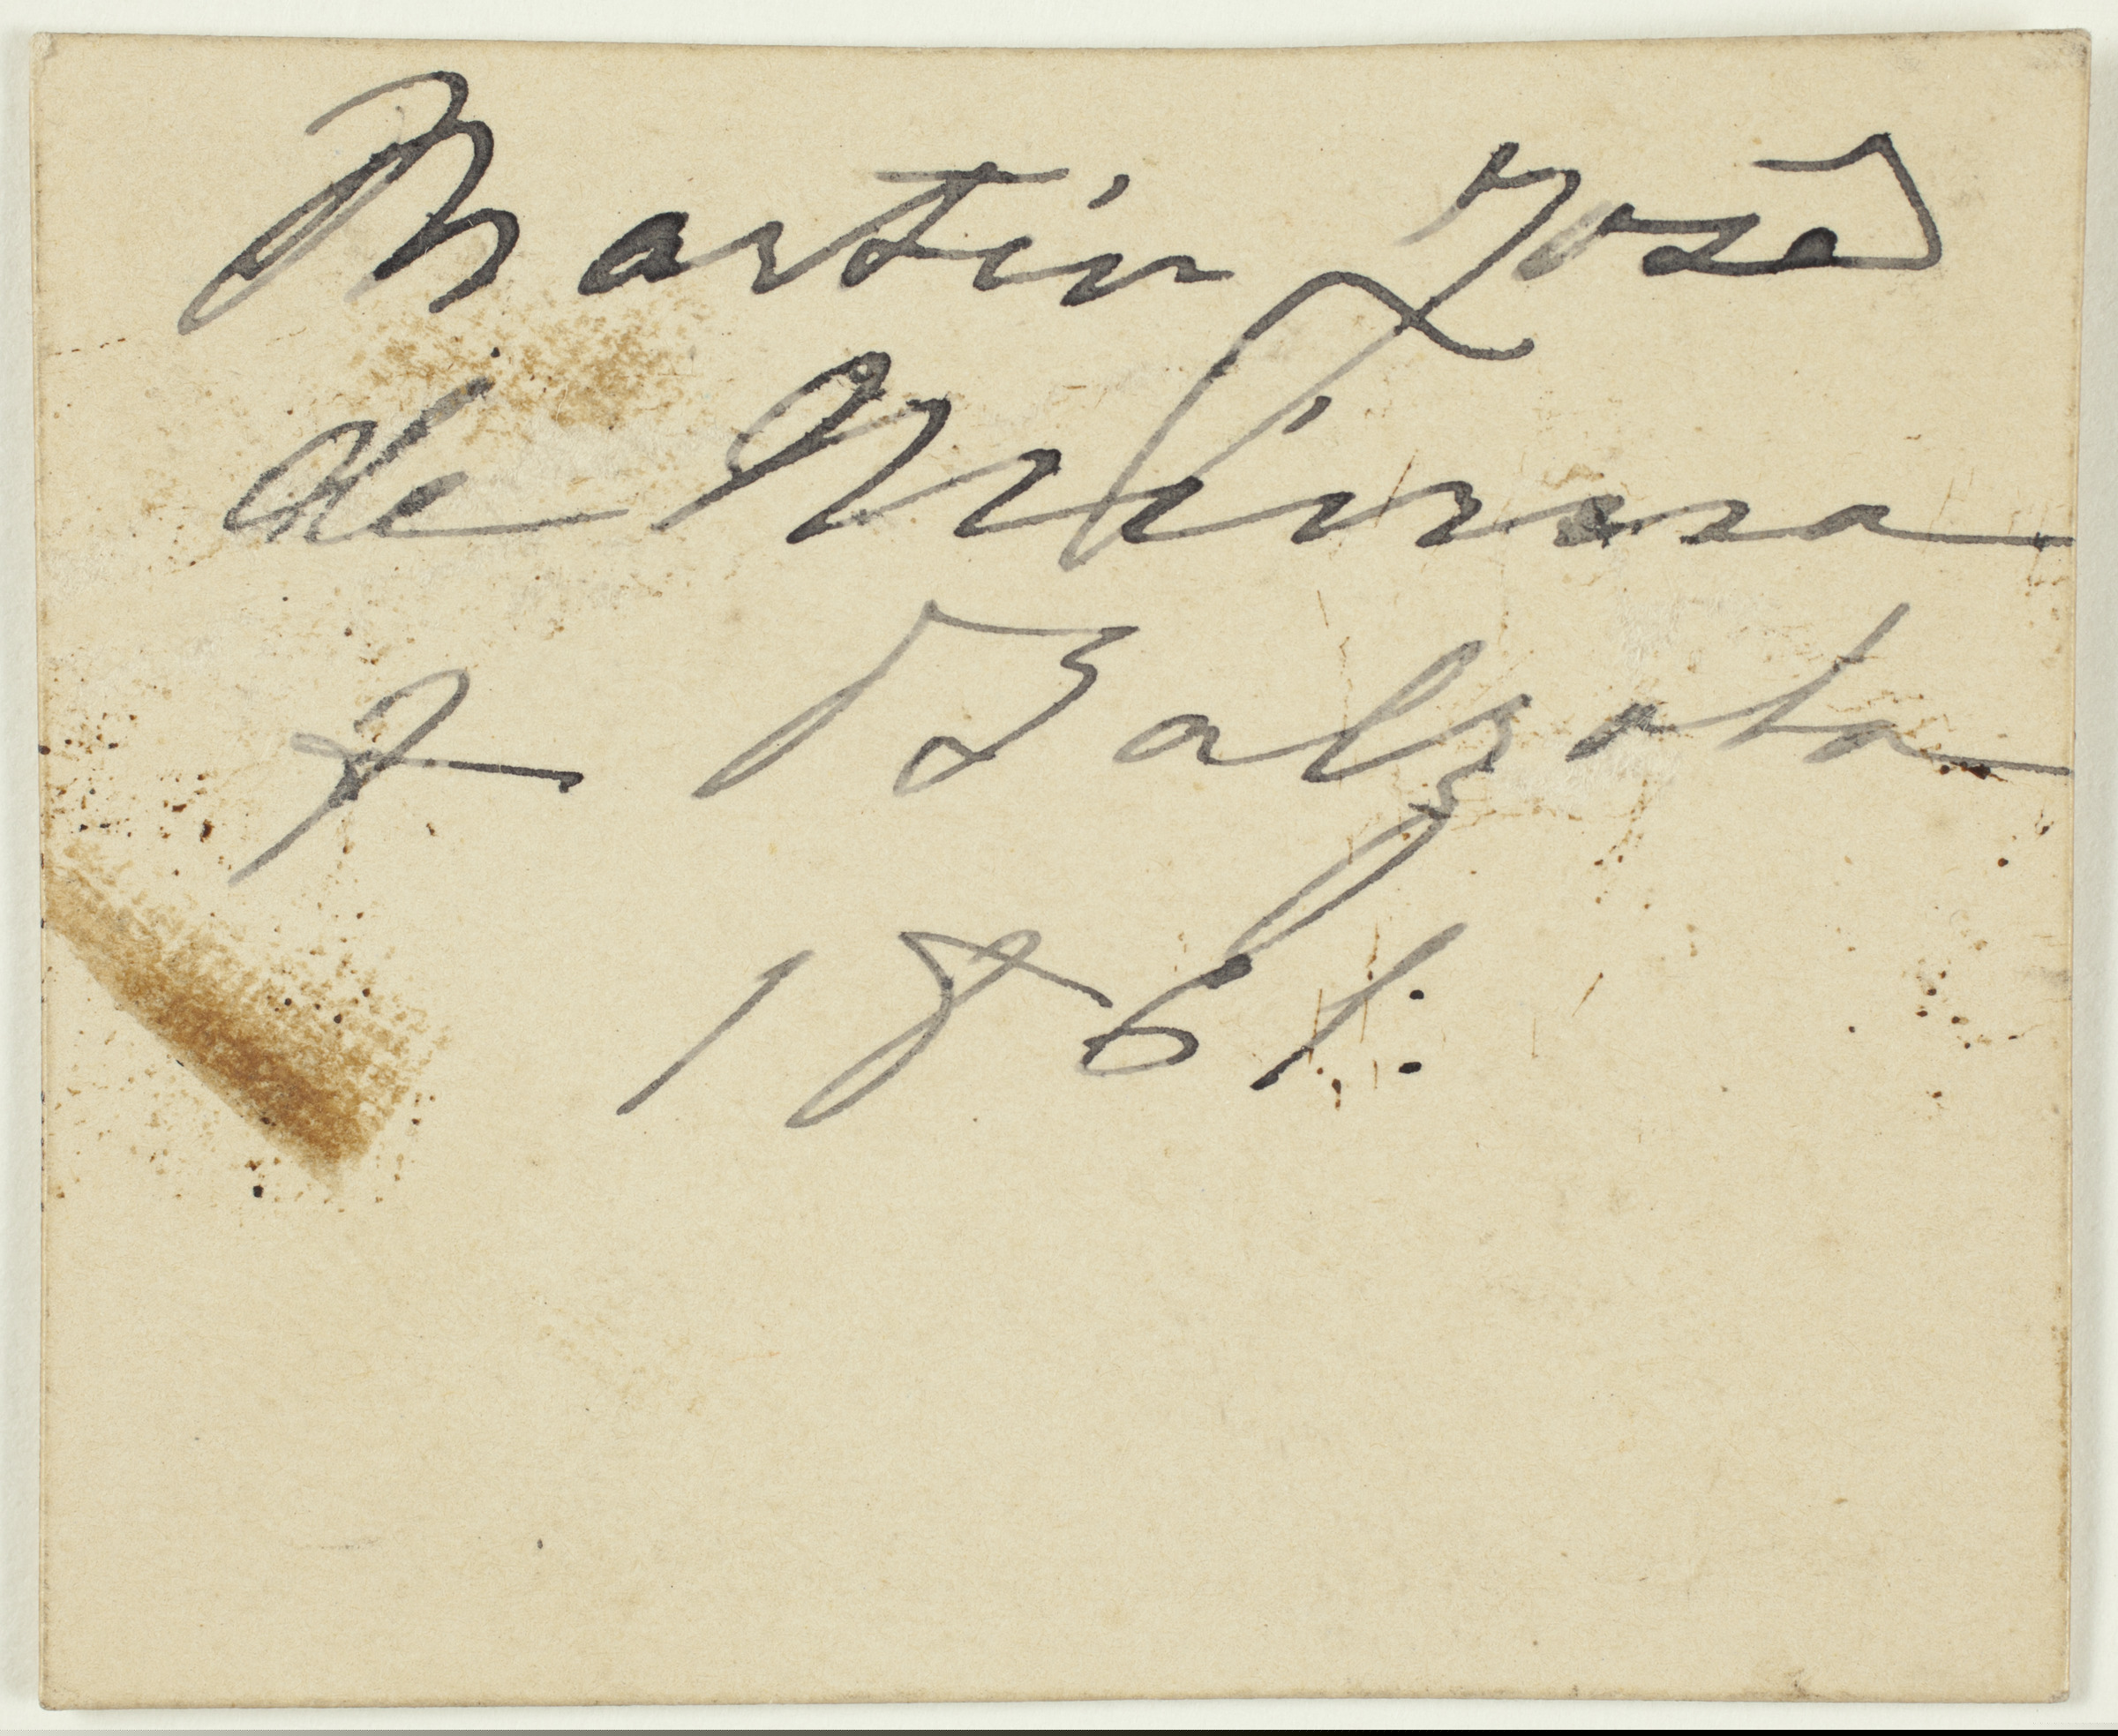 Martin José
de Múrua
y Balzola
1861: